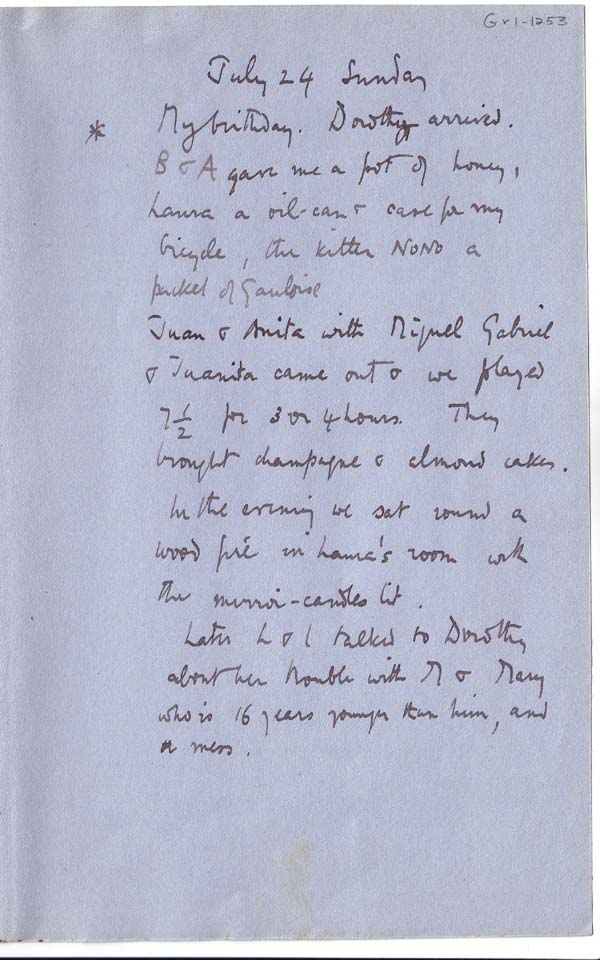 Gr1-1253
July 24 Sunday
* My birthday. Dorothy arrived.
B & A gave me a pot of honey,
Laura a oil-can & case for my
bicycle, the kitten NONO a
packet of Gauloise
Juan & Anita with Miguel Gabriel
& Juanita came out & we played
7½ for 3 or 4 hours. They
brought champagne & almond cakes.
In the evening we sat round a
wood fire in Laura's room with
the mirror-candles lit.
Later L & I talked to Dorothy
about her trouble with M & Mary
who is 16 years younger than him, and
a mess.